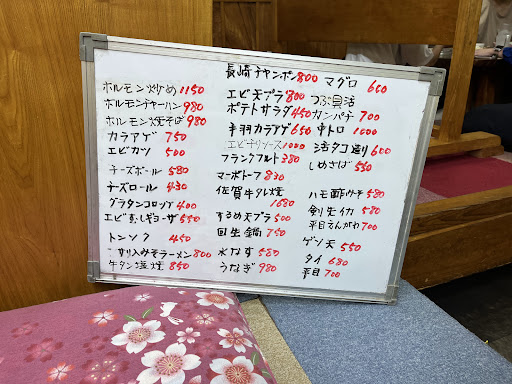 ホルモン炒め 1150
ホルモンチャーハン 980
ホルモン焼そば 980
カラアゲ 750
エビカツ 500
チーズボール 580
チーズロール 430
グラタンコロッケ 400
エビむしギョーザ 550
トンソク 450
スリ入みそラーメン 800
牛タン塩焼 850
長崎チャンポン 800
エビ天プラ 800
ポテトサラダ 450
手羽カラアゲ 650
エビチリソース 1000
フランクフルト 380
マーボトーフ 830
佐賀牛タレ焼 1680
するめ天プラ 500
回生鍋 750
水なす 580
うなぎ 980
マグロ 600
つぶ貝活
カンパチ 700
中トロ 1000
活タコ造り 600
しめさば 550
ハモ酢みそ 580
剣先イカ 580
平目えんがわ 700
ゲソ天 550
タイ 680
平目 700